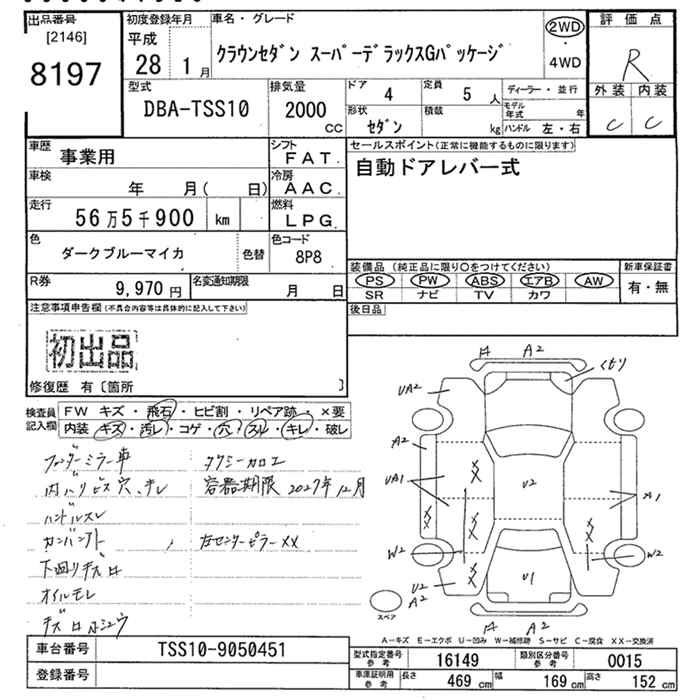 出品番号 初度登録年月 車名・グレード 2WD 評価点
[2146] 平成 クラウンセダン スーパーデラックスGパッケージ ・ R
8197 28 1月 4WD 外装 内装
型式 排気量 ドア 4 定員 5人 ディーラー・並行 C C
DBA-TSS10 2000 形状 積載 モデル年式 年
CC セダン kg ハンドル 左・右
車歴 事業用 シフト FAT. セールスポイント(正常に機能するものに限ります)
車検 年 月( 日) 冷房 AAC. 自動ドアレバー式
走行 56万5千900 km 燃料 LPG.
色 ダークブルーマイカ 色替 色コード 8P8
装備品 (純正品に限り○をつけてください) 新車保証書
R券 9,970円 名変通知期限 月 日 PS PW ABS エアB AW 有・無
SR ナビ TV カワ
注意事項申告欄(不具合内容等は具体的に記入して下さい) 後日品
初出品
修復歴 有〔箇所 〕
検査員 FW キズ・飛石・ヒビ割・リペア跡・×要
記入欄 内装 キズ・汚レ・コゲ・穴・スレ・キレ・破レ
フェンダーミラー車 タクシー加工
内ハリビス穴、キレ 容器期限 2027年12月
ハンドルスレ
カンバンアト 左センターピラーXX
下廻りキズロ
オイルモレ
A2
UA2
A2
UA1 U2 A1
W2 W2
U2 A2 U1
スペア
A2
A―キズ E―エクボ U―凹み W―補修跡 S―サビ C―腐食 XX―交換済
車台番号 TSS10-9050451
登録番号
型式指定番号 参考 16149 類別区分番号 参考 0015
車庫証明用 参考 長さ 469 cm 幅 169 cm 高さ 152 cm